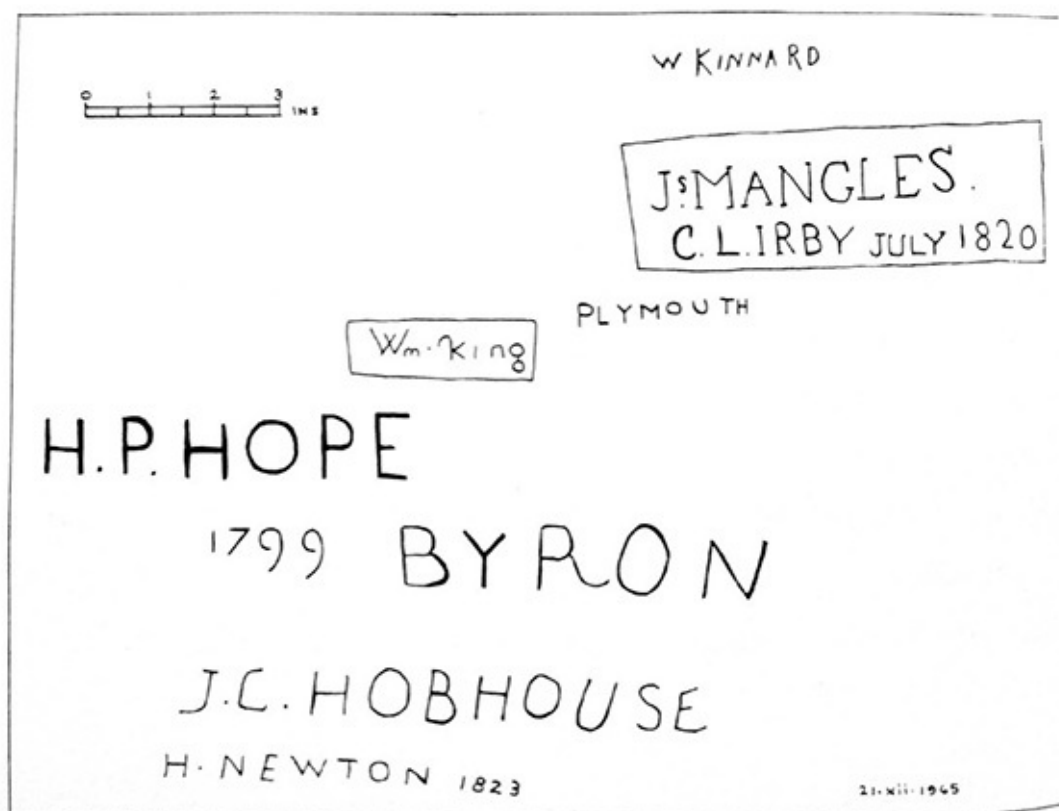 W KINNARD
0 1 2 3 INS
Js. MANGLES.
C. L. IRBY JULY 1820
PLYMOUTH
Wm. King
H. P. HOPE
1799 BYRON
J. C. HOBHOUSE
H. NEWTON 1823
21.xii.1965